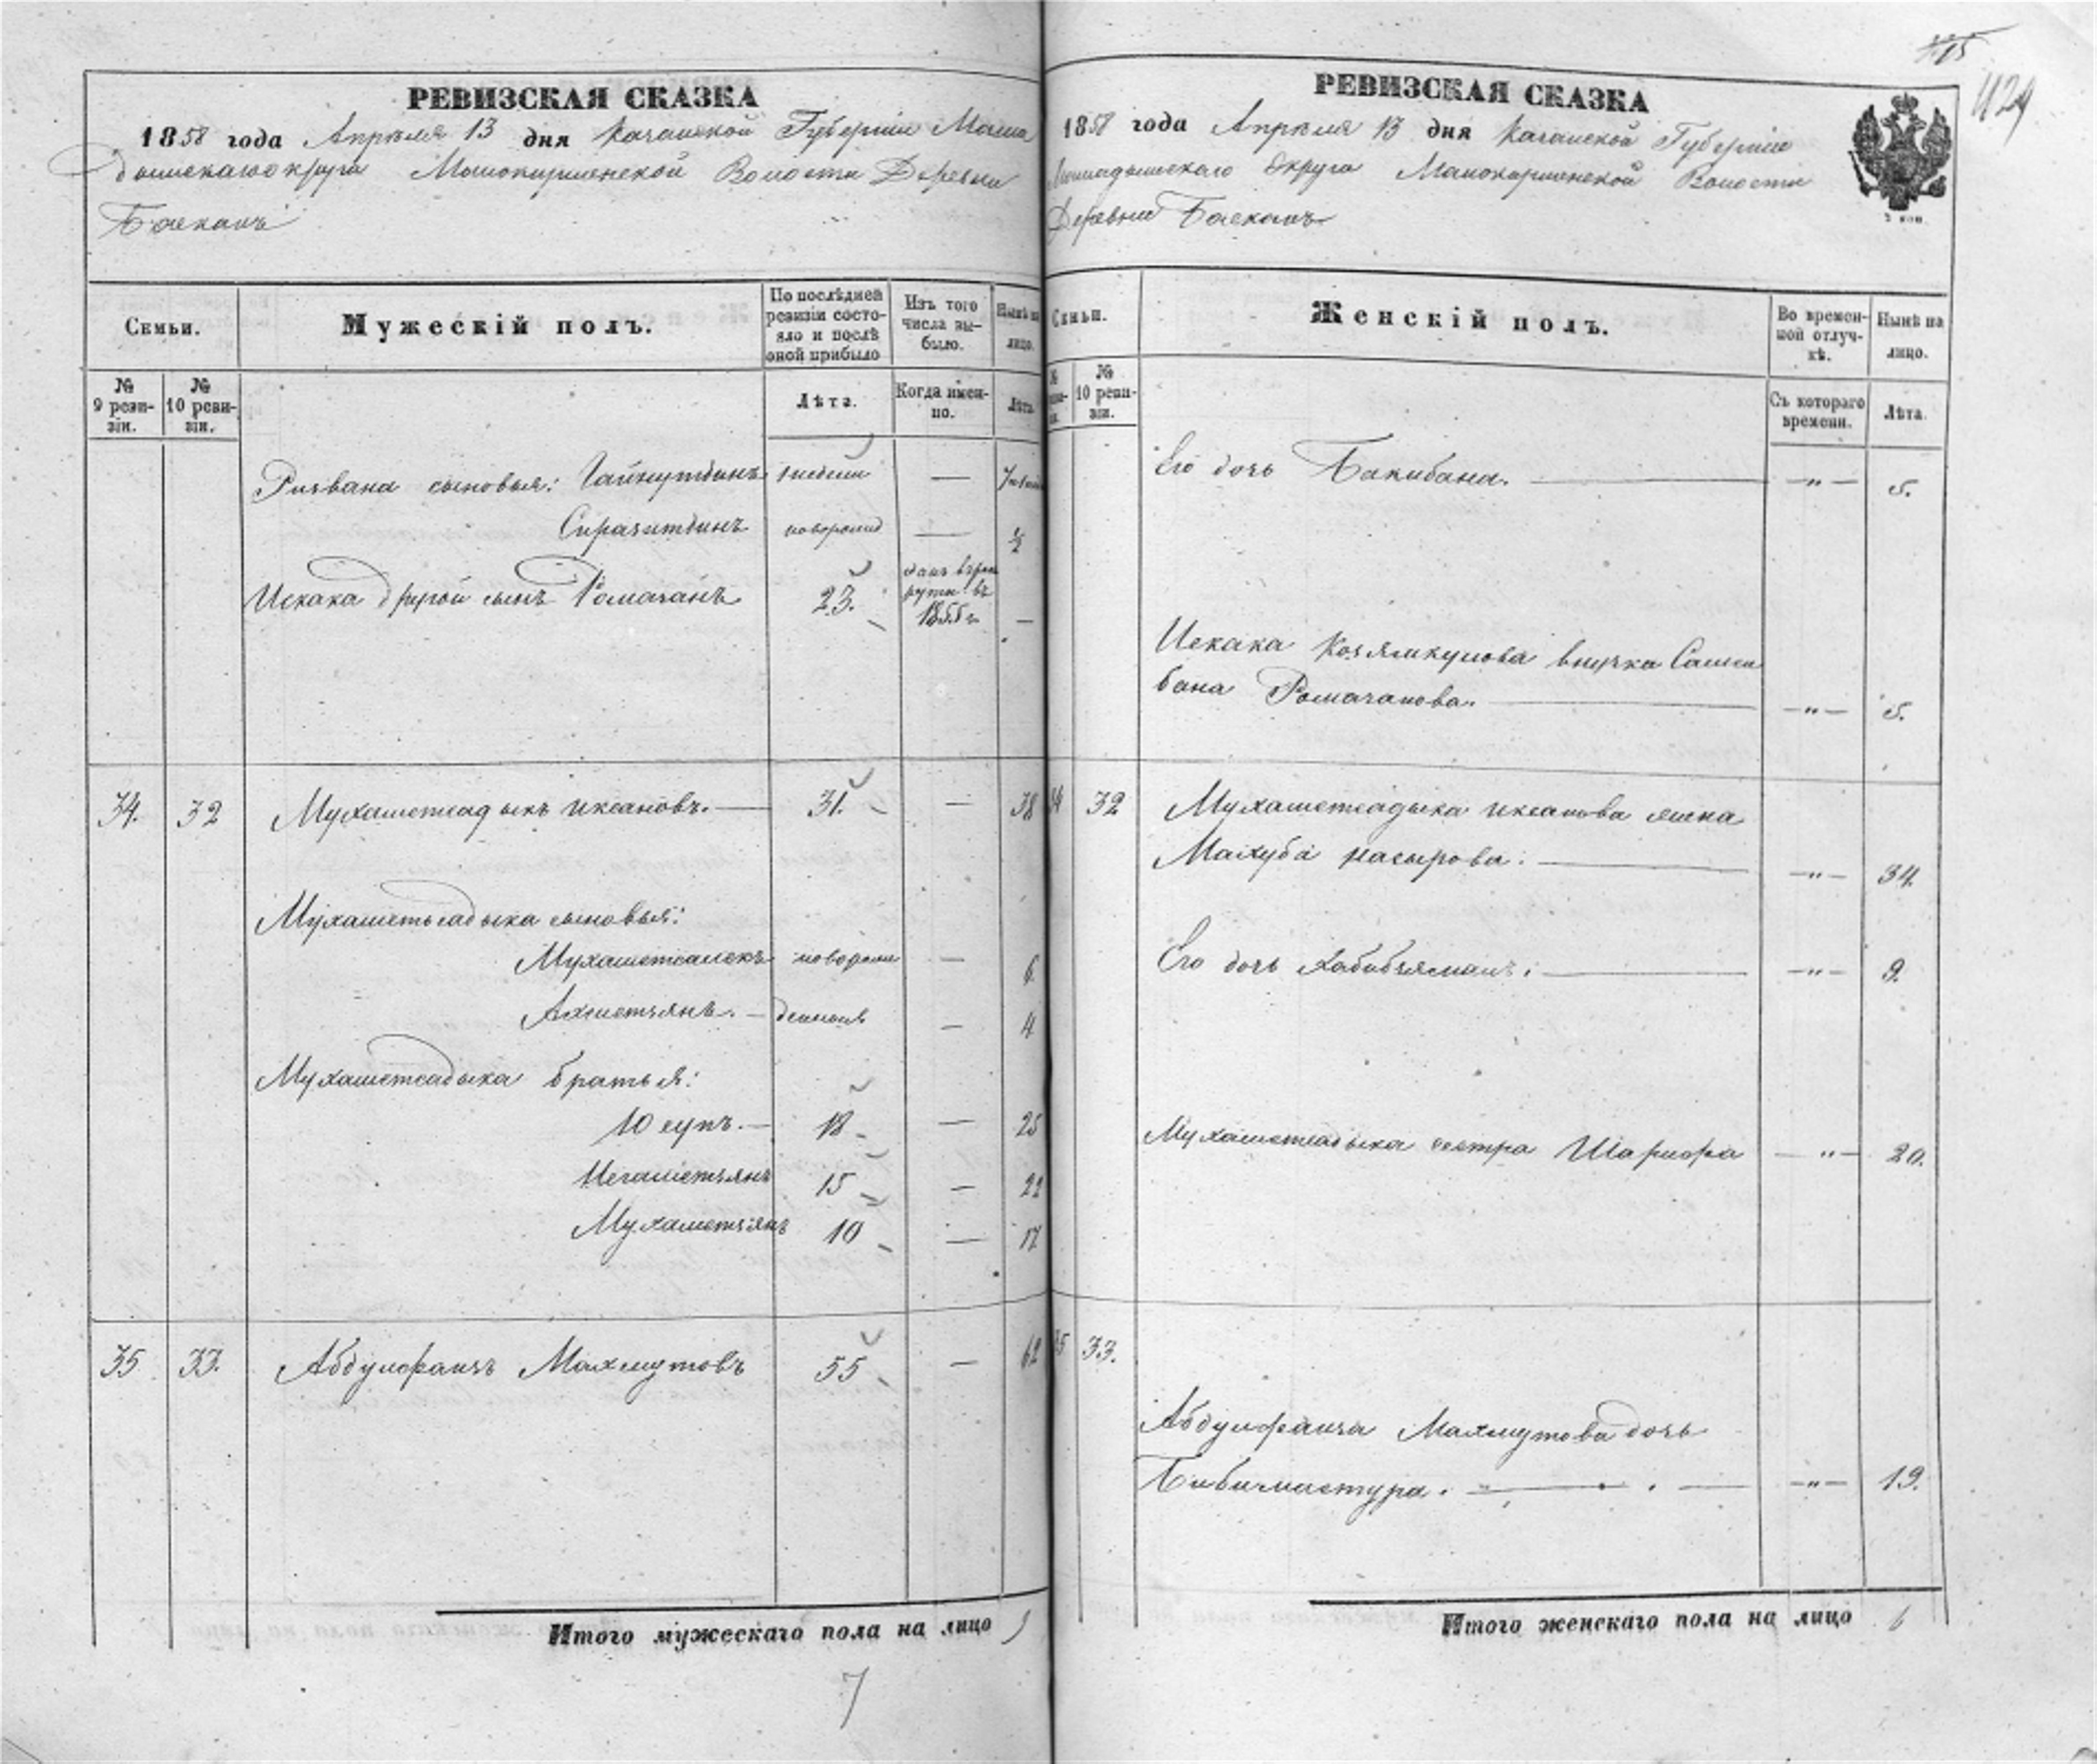 РЕВИЗСКАЯ СКАЗКА
1858 года Апрѣля 13 дня Казанской Губерніи Мама
дышскаго округа Малокирменской Волости Деревни
Баскань
Семьи.
Мужескій полъ.
По послѣдней
ревизіи состо-
яло и послѣ
оной прибыло
Изъ того
числа вы-
было.
Нынѣ на
лицо.
№
9 реви-
зіи.
№
10 реви-
зіи.
Лѣта.
Когда имен-
но.
Лѣта
Ризвана сыновья: Гайнутдинъ 1 недели —
Сиразитдинъ новорожд — ½
Искака другой сынъ Ромазанъ 23. —
1855 г
34. 32 Мухаметсадыкъ Иксановъ. — 31. — 38
Мухаметьсадыка сыновья:
Мухаметсалекъ новорож — 6
Ахметзянъ. — — 4
Мухаметсадыка братья:
Юсупъ. — 18 — 25
Негаметзянъ 15 — 22
Мухаметзянъ 10 — 17
35 33. Абдулфаизъ Махмутовъ 55 — 62
Итого мужескаго пола на лицо 9
7
429
РЕВИЗСКАЯ СКАЗКА
1858 года Апрѣля 13 дня Казанской Губерніи
Мамадышскаго Округа Малокирменской Волости
Деревни Басканъ
2 коп.
Семьи.
Женскій полъ.
Во времен-
ной отлуч-
кѣ.
Нынѣ на
лицо.
№
10 реви-
зіи.
Съ котораго
времени.
Лѣта.
Его дочь Бакибана. — — " — 5.
Искака Козямкулова внучка Сали
бана Ромазанова. — — " — 5.
34 32 Мухаметсадыка Иксанова жена
Махуба Насырова. — — " — 34
Его дочь Хабибзяманъ. — — " — 9.
Мухаметсадыка сестра Шарифа — " — 20.
35 33.
Абдулфаиза Махмутова дочь
Бибимастура. — — " — 19.
Итого женскаго пола на лицо 6